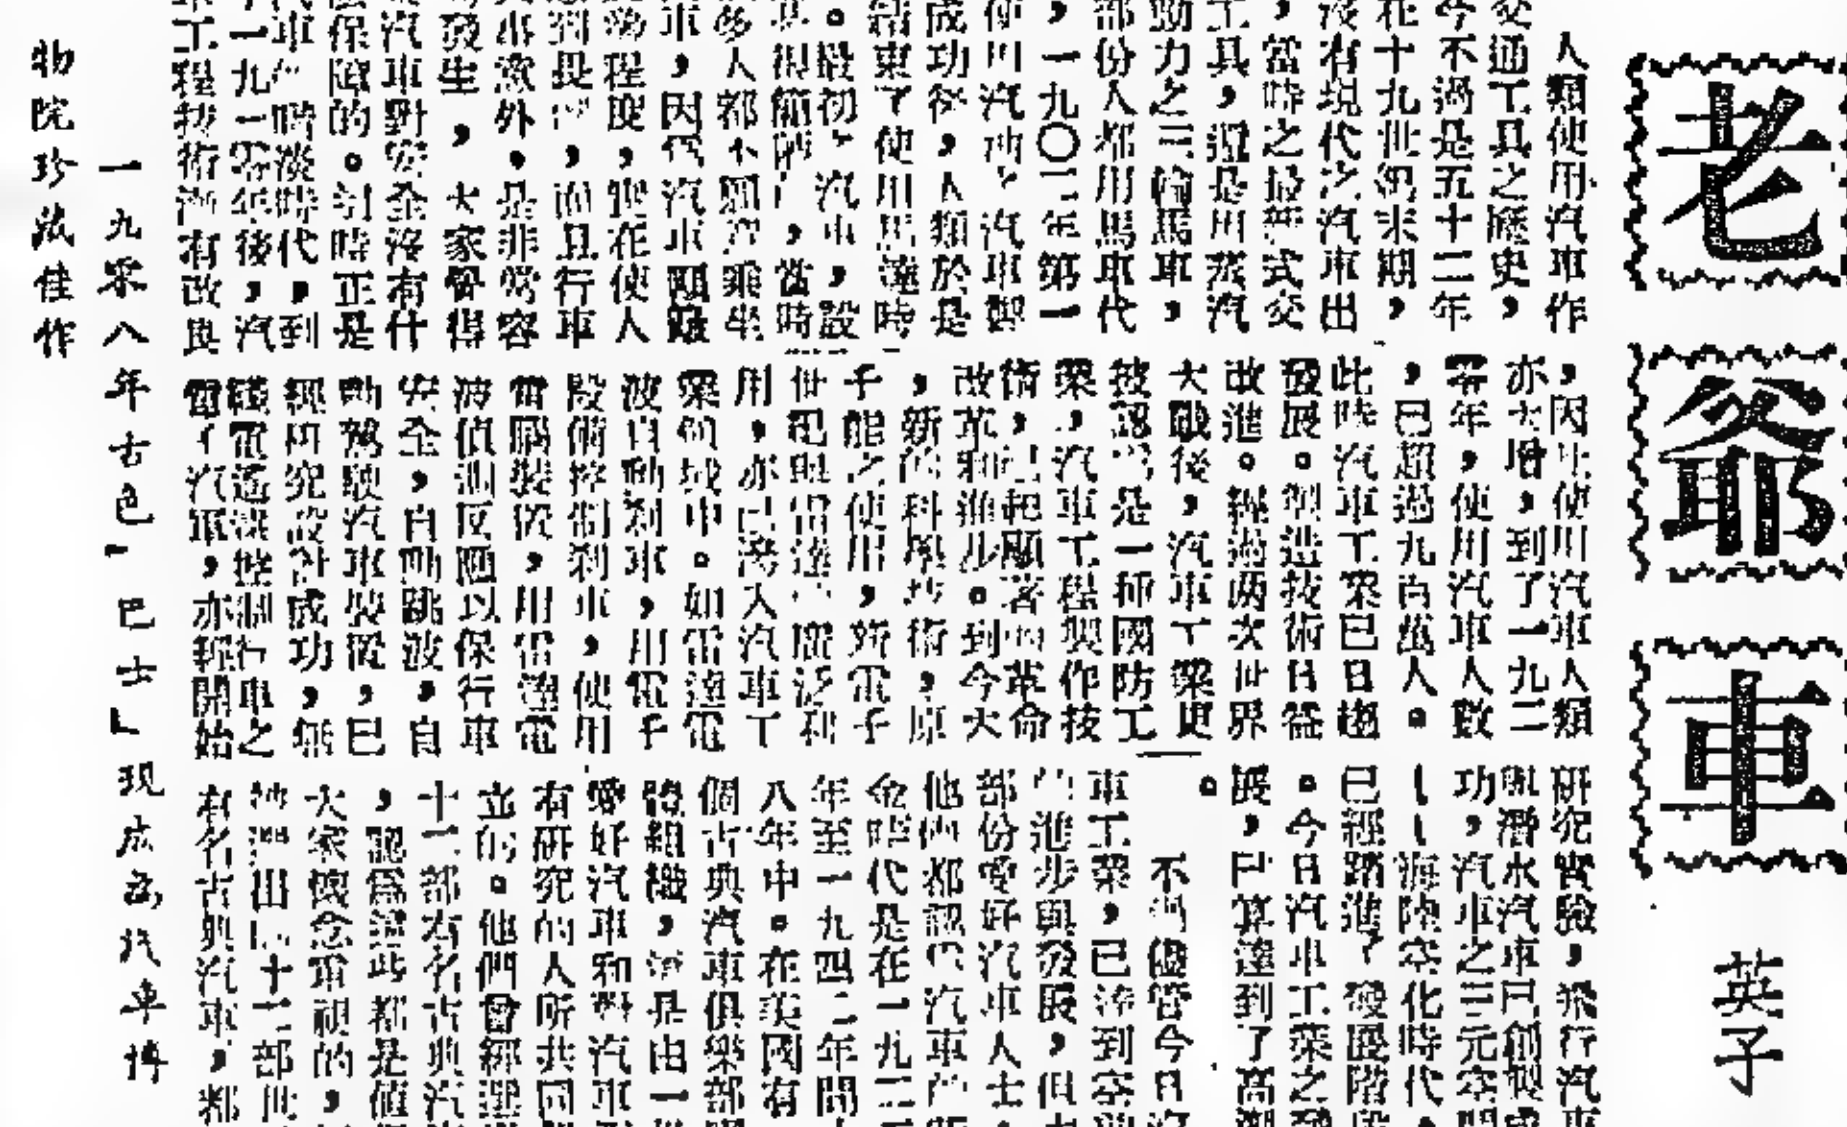 老爺車
英子
人類使用汽車作
交通工具之歷史，
今不過是五十二年
在十九世紀末期，
沒有現代之汽車出
，當時之最新式交
工具，還是用蒸汽
動力之三輪馬車，
部份人都用馬車代
，一九〇二年第一
使用汽油之汽車製
成功後，人類於是
結束了使用馬達時
。最初之汽車，設
得簡陋，當時
多人都不願意乘坐
車，因為汽車顛簸
程度，實在使人
感到畏懼，而且行車
出意外，是非常容
發生，大家覺得
汽車對安全沒有什
保障的。那時正是
汽車的黯淡時代，到
一九一零年後，汽
車工程技術漸有改良
，因此使用汽車人類
亦大增，到了一九二
零年，使用汽車人數
，已超過九百萬人。
此時汽車工業已日趨
發展。製造技術日益
改進。經過两次世界
大戰後，汽車工業更
被認為是一種國防工
業，汽車工程與作技
術，已起顯著的革命
改革和進步。到今天
，新的科學技術，原
子能之使用，於電子
世紀與雷達之廣泛利
用，亦已滲入汽車工
業領域中。如雷達電
波自動剎車，用電子
設備控制剎車，使用
電腦裝置，用雷達電
波偵測反應以保行車
安全，自動跳波，自
動駕駛汽車裝置，已
經研究設計成功，無
綫電遙控制行車之
電子汽車，亦經開始
研究實驗，飛行汽車
與潛水汽車已創製成
功，汽車之三元空間
——海陸空化時代，
已經踏進了發展階段
。今日汽車工業之發
展，已算達到了高潮
。
不過儘管今日汽
車工業，已達到空前
的進步與發展，但大
部份愛好汽車人士，
他們都認為汽車的
金時代是在一九二五
年至一九四二年間
八年中。在美國有
個古典汽車俱樂部
體組織，這是由一
愛好汽車和對汽車
有研究的人所共同
立的。他們曾經選
十二部有名古典汽
，認為這些都是值
大家懷念重視的，
被選出的十二部世
有名古典汽車，都
一九零八年古色「巴士」現成為汽車博
物院珍藏佳作